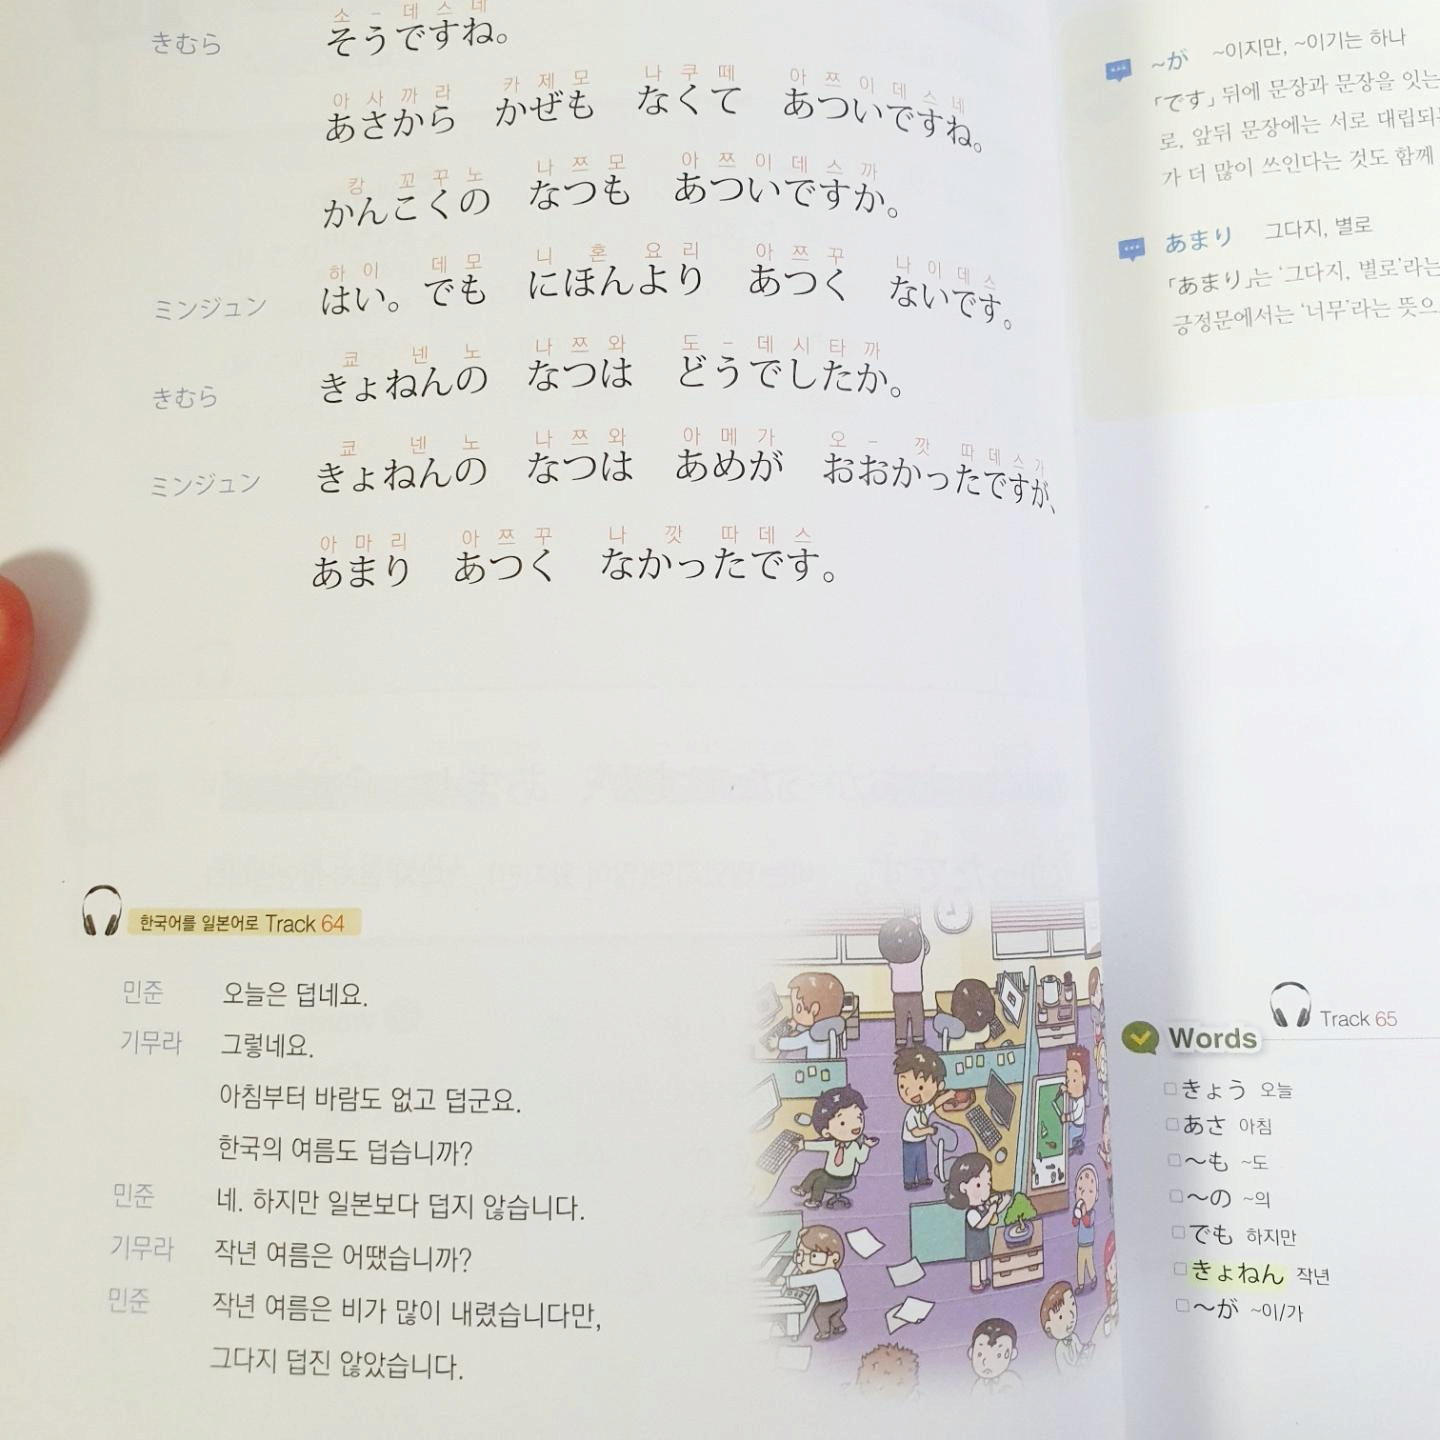 소 - 데 스 네
きむら そうですね。
아 사 까 라 카 제 모 나 쿠 떼 아 쯔 이 데 스 네
あさから かぜも なくて あついですね。
캉 꼬 꾸 노 나 쯔 모 아 쯔 이 데 스 까
かんこくの なつも あついですか。
하 이 데 모 니 혼 요 리 아 쯔 꾸 나 이 데 스
ミンジュン はい。でも にほんより あつく ないです。
쿄 넨 노 나 쯔 와 도 - 데 시 타 까
きむら きょねんの なつは どうでしたか。
쿄 넨 노 나 쯔 와 아 메 가 오 - 깟 따 데 스 가
ミンジュン きょねんの なつは あめが おおかったですが、
아 마 리 아 쯔 꾸 나 깟 따 데 스
あまり あつく なかったです。
한국어를 일본어로 Track 64
민준 오늘은 덥네요.
기무라 그렇네요.
아침부터 바람도 없고 덥군요.
한국의 여름도 덥습니까?
민준 네. 하지만 일본보다 덥지 않습니다.
기무라 작년 여름은 어땠습니까?
민준 작년 여름은 비가 많이 내렸습니다만,
그다지 덥진 않았습니다.
~が ~이지만, ~이기는 하나
「です」 뒤에 문장과 문장을 잇는
로, 앞뒤 문장에는 서로 대립되
가 더 많이 쓰인다는 것도 함께
あまり 그다지, 별로
「あまり」는 ‘그다지, 별로’라는
긍정문에서는 ‘너무’라는 뜻으
Track 65
Words
きょう 오늘
あさ 아침
~も ~도
~の ~의
でも 하지만
きょねん 작년
~が ~이/가